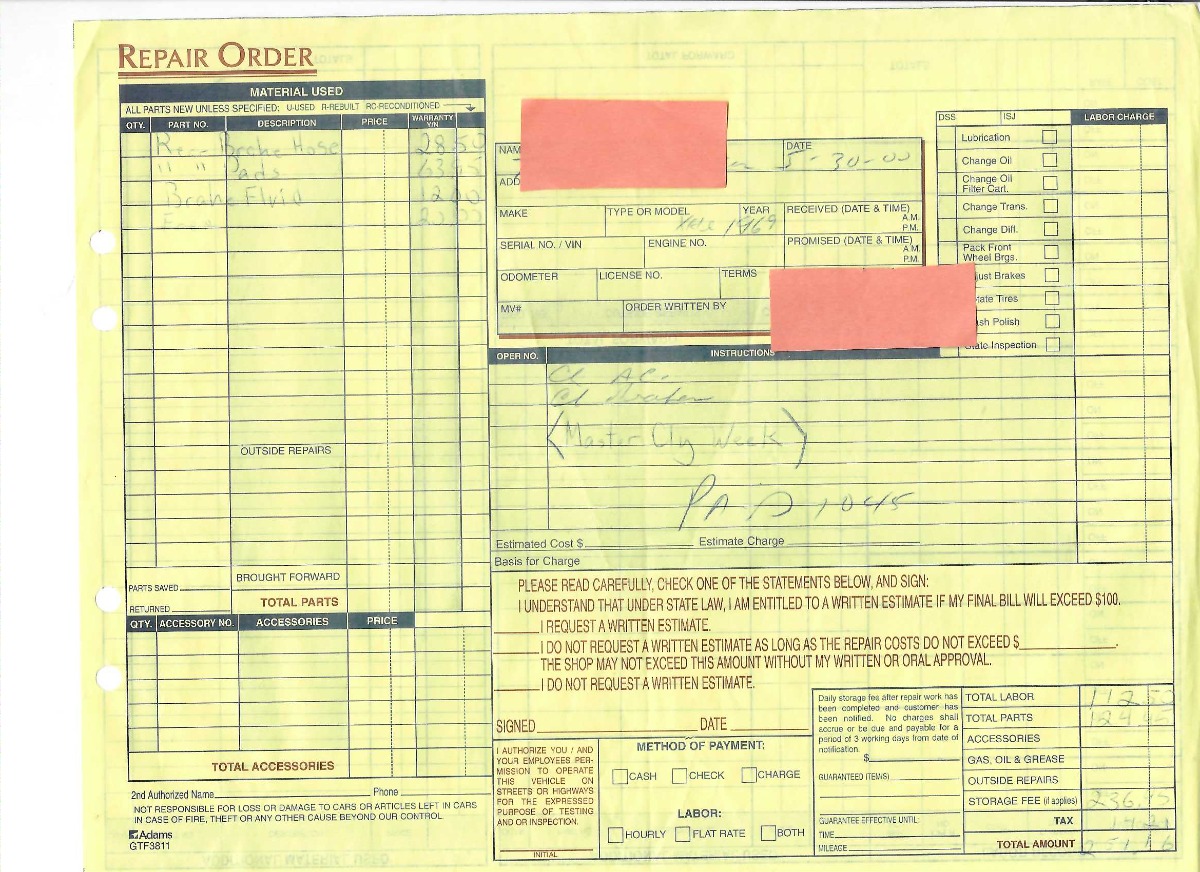 REPAIR ORDER
MATERIAL USED
ALL PARTS NEW UNLESS SPECIFIED: U-USED R-REBUILT RC-RECONDITIONED
QTY. PART NO. DESCRIPTION PRICE WARRANTY Y/N
Brake Hose 28.50
" " Pads 63.95
Brake Fluid 12.00
20.00
OUTSIDE REPAIRS
BROUGHT FORWARD
PARTS SAVED
RETURNED
TOTAL PARTS
QTY. ACCESSORY NO. ACCESSORIES PRICE
TOTAL ACCESSORIES
2nd Authorized Name Phone
NOT RESPONSIBLE FOR LOSS OR DAMAGE TO CARS OR ARTICLES LEFT IN CARS
IN CASE OF FIRE, THEFT OR ANY OTHER CAUSE BEYOND OUR CONTROL
Adams
GTF3811
DATE
5-30-00
MAKE TYPE OR MODEL YEAR RECEIVED (DATE & TIME)
A.M.
P.M.
1969
SERIAL NO. / VIN ENGINE NO. PROMISED (DATE & TIME)
A.M.
P.M.
ODOMETER LICENSE NO. TERMS
MV# ORDER WRITTEN BY
DSS ISJ LABOR CHARGE
Lubrication
Change Oil
Change Oil
Filter Cart.
Change Trans.
Change Diff.
Pack Front
Wheel Brgs.
Brakes
Tires
Polish
Inspection
OPER NO. INSTRUCTIONS
(Master Cly Week)
PAID 1045
Estimated Cost $ Estimate Charge
Basis for Charge
PLEASE READ CAREFULLY, CHECK ONE OF THE STATEMENTS BELOW, AND SIGN:
I UNDERSTAND THAT UNDER STATE LAW, I AM ENTITLED TO A WRITTEN ESTIMATE IF MY FINAL BILL WILL EXCEED $100.
I REQUEST A WRITTEN ESTIMATE.
I DO NOT REQUEST A WRITTEN ESTIMATE AS LONG AS THE REPAIR COSTS DO NOT EXCEED $
THE SHOP MAY NOT EXCEED THIS AMOUNT WITHOUT MY WRITTEN OR ORAL APPROVAL.
I DO NOT REQUEST A WRITTEN ESTIMATE.
SIGNED DATE
I AUTHORIZE YOU / AND
YOUR EMPLOYEES PER-
MISSION TO OPERATE
THIS VEHICLE ON
STREETS OR HIGHWAYS
FOR THE EXPRESSED
PURPOSE OF TESTING
AND/OR INSPECTION.
INITIAL
METHOD OF PAYMENT:
CASH CHECK CHARGE
LABOR:
HOURLY FLAT RATE BOTH
Daily storage fee after repair work has
been completed and customer has
been notified. No charges shall
accrue or be due and payable for a
period of 3 working days from date of
notification.
$
GUARANTEED ITEM(S)
GUARANTEE EFFECTIVE UNTIL:
TIME
MILEAGE
TOTAL LABOR 112.50
TOTAL PARTS 124.45
ACCESSORIES
GAS, OIL & GREASE
OUTSIDE REPAIRS
STORAGE FEE (if applies) 236.95
TAX
TOTAL AMOUNT 251.16